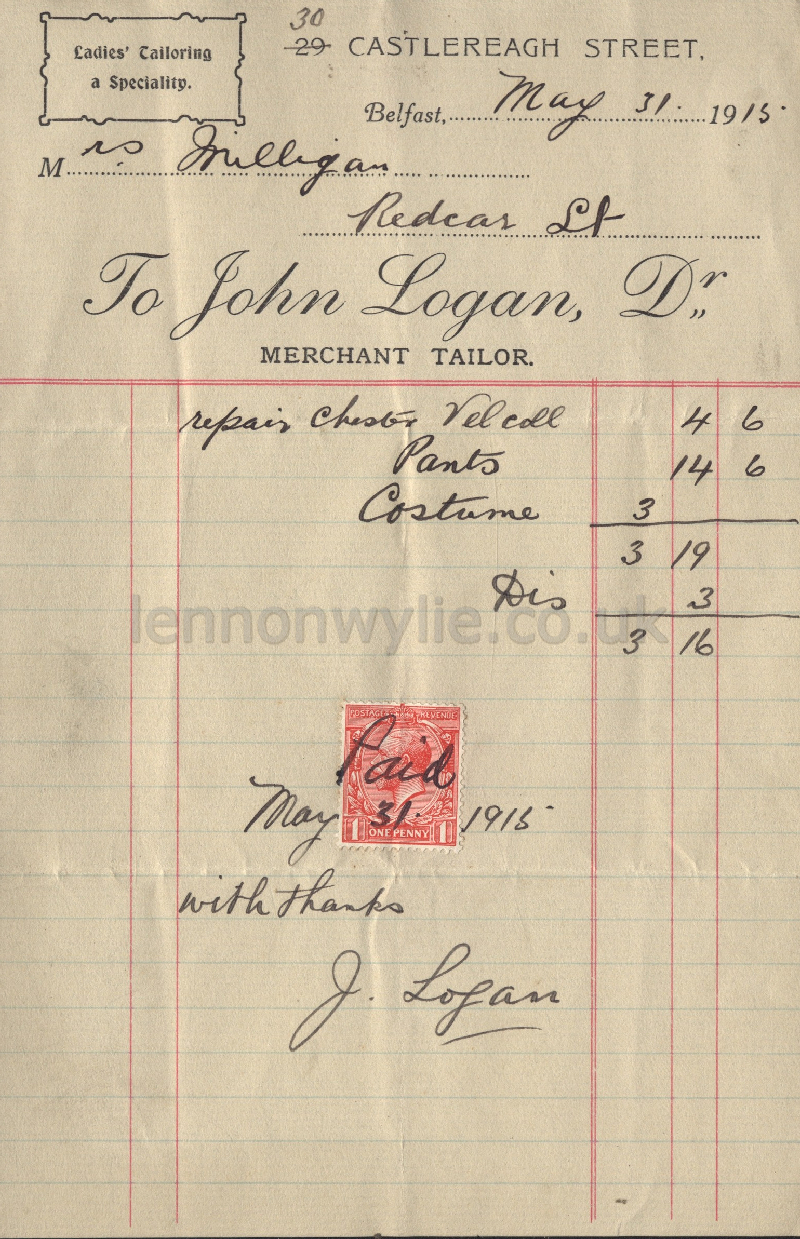 Ladies' Tailoring
a Speciality.
30
29 CASTLEREAGH STREET,
Belfast, May 31. 1915.
Mrs. Milligan
Redcar St
To John Logan, Dr.
MERCHANT TAILOR.
repair Chester Vel coll 4 6
Pants 14 6
Costume 3
3 19
Dis 3
lennonwylie.co.uk
3 16
POSTAGE REVENUE
Paid
May 31. 1915
1 ONE PENNY 1
with thanks
J. Logan